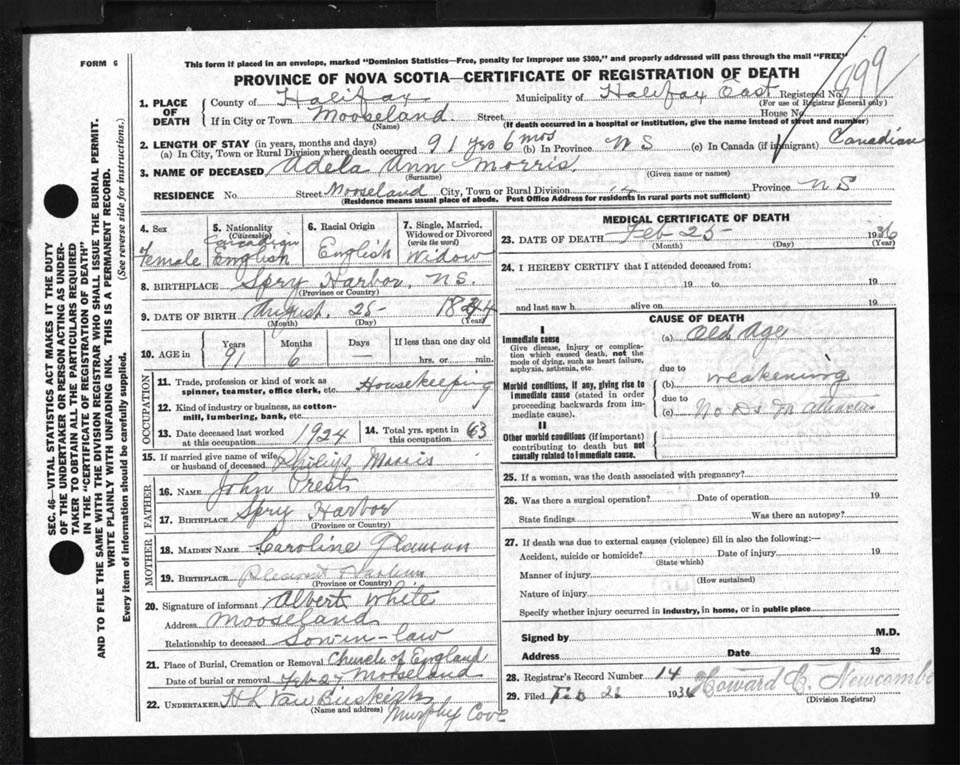 FORM 6
This form if placed in an envelope, marked "Dominion Statistics—Free, penalty for improper use $300," and properly addressed will pass through the mail "FREE"
PROVINCE OF NOVA SCOTIA—CERTIFICATE OF REGISTRATION OF DEATH
1. PLACE OF DEATH County of Halifax Municipality of Halifax East Registered No.
(For use of Registrar General only)
If in City or Town Mooseland Street House No.
(Name) (If death occurred in a hospital or institution, give the name instead of street and number)
2. LENGTH OF STAY (in years, months and days)
(a) In City, Town or Rural Division where death occurred 91 yrs 6 mos (b) In Province NS (c) In Canada (if immigrant) Canadian
3. NAME OF DECEASED Adela Ann Morris
(Surname) (Given name or names)
RESIDENCE No. Street Mooseland City, Town or Rural Division Province NS
(Residence means usual place of abode. Post Office Address for residents in rural parts not sufficient)
4. Sex Female
5. Nationality (Citizenship) Canadian English
6. Racial Origin English
7. Single, Married, Widowed or Divorced (write the word) Widow
8. BIRTHPLACE Spry Harbor, NS.
(Province or Country)
9. DATE OF BIRTH August 25 1844
(Month) (Day) (Year)
10. AGE in Years 91 Months 6 Days — If less than one day old
hrs. or min.
OCCUPATION
11. Trade, profession or kind of work as spinner, teamster, office clerk, etc. Housekeeping
12. Kind of industry or business, as cotton-mill, lumbering, bank, etc.
13. Date deceased last worked at this occupation 1924
14. Total yrs. spent in this occupation 63
15. If married give name of wife or husband of deceased Morris
FATHER
16. NAME John Prest
17. BIRTHPLACE Spry Harbor
(Province or Country)
MOTHER
18. MAIDEN NAME Caroline
19. BIRTHPLACE
(Province or Country)
20. Signature of informant Albert White
Address Mooseland
Relationship to deceased Son-in-law
21. Place of Burial, Cremation or Removal Church of England
Date of burial or removal Feb 27 Mooseland
22. UNDERTAKER H L Van Buskirk
(Name and address) Murphy Cove
MEDICAL CERTIFICATE OF DEATH
23. DATE OF DEATH Feb 25 1936
(Month) (Day) (Year)
24. I HEREBY CERTIFY that I attended deceased from:
19 to 19
and last saw h alive on 19
CAUSE OF DEATH
I
Immediate cause
Give disease, injury or complication which caused death, not the mode of dying, such as heart failure, asphyxia, asthenia, etc.
(a) Old Age
due to
Morbid conditions, if any, giving rise to immediate cause (stated in order proceeding backwards from immediate cause).
(b) weakening
due to
(c) No Dr in
II
Other morbid conditions (if important) contributing to death but not causally related to immediate cause.
25. If a woman, was the death associated with pregnancy?
26. Was there a surgical operation? Date of operation 19
State findings Was there an autopsy?
27. If death was due to external causes (violence) fill in also the following:—
Accident, suicide or homicide? Date of injury 19
(State which)
Manner of injury
(How sustained)
Nature of injury
Specify whether injury occurred in industry, in home, or in public place
Signed by M.D.
Address Date 19
28. Registrar's Record Number 14
29. Filed Feb 1936 Howard C. Newcombe
(Division Registrar)
SEC. 46—VITAL STATISTICS ACT MAKES IT THE DUTY
OF THE UNDERTAKER OR PERSON ACTING AS UNDER-
TAKER TO OBTAIN ALL THE PARTICULARS REQUIRED
IN THE "CERTIFICATE OF REGISTRATION OF DEATH"
AND TO FILE THE SAME WITH THE DIVISION REGISTRAR WHO SHALL ISSUE THE BURIAL PERMIT.
WRITE PLAINLY WITH UNFADING INK. THIS IS A PERMANENT RECORD.
Every item of information should be carefully supplied. (See reverse side for instructions.)